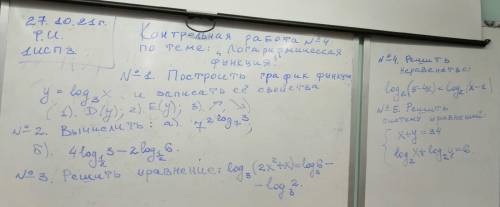 27.10.21г.
Р.И.
1ИСПЗ
Контрольная работа №4
по теме: „Логарифмическая
функция"
№1. Построить график функции
y = log₃ x и записать её свойства
(1). D(y); 2). E(y); 3). ↗, ↘)
№2. Вычислить: а). 7^(2log₇3);
Б). 4log_(1/2) 3 - 2log_(1/2) 6.
№3. Решить уравнение: log₃(2x²+x) = log₃6 -
- log₃2.
№4. Решить
неравенство:
log₂(5-4x) < log₂(x-2)
№5. Решить
систему уравнений:
x+y=34
log₂x + log₂y = 6